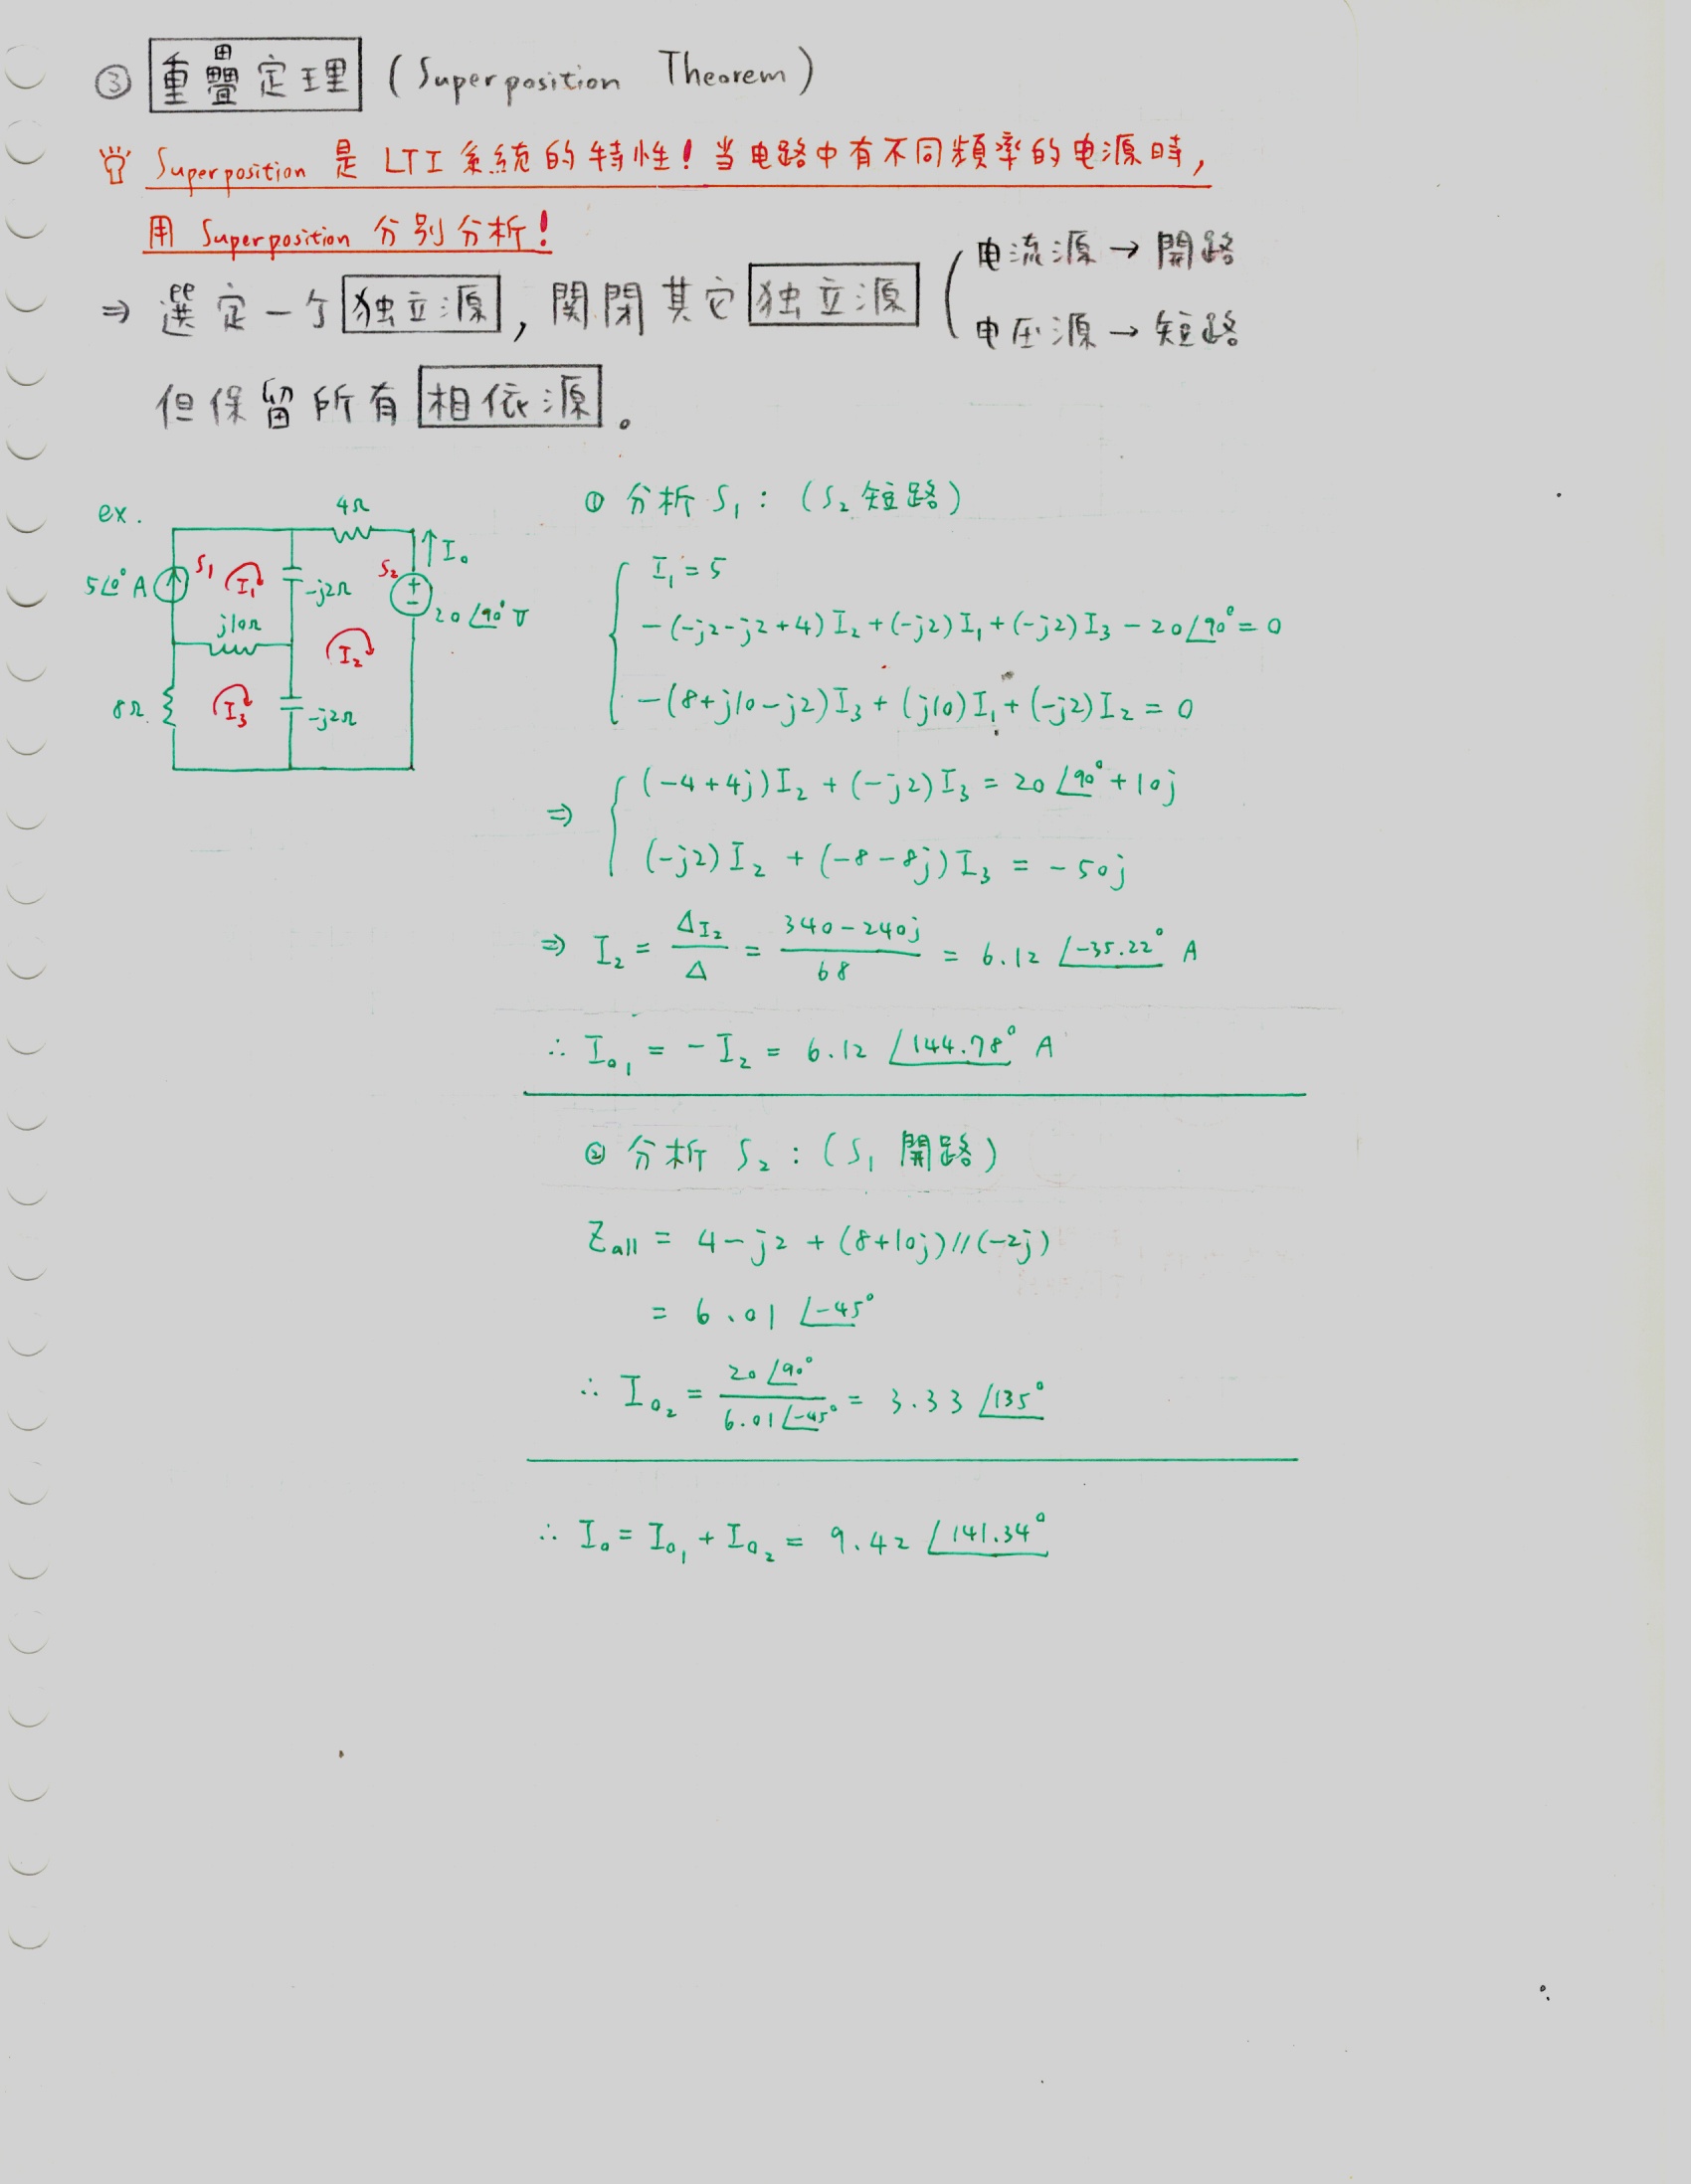 ③ 重疊定理 (Superposition Theorem)
Superposition 是 LTI 系統的特性! 当电路中有不同頻率的电源時,
用 Superposition 分別分析!
⇒ 選定一个独立源, 関閉其它独立源 ( 电流源 → 開路
电压源 → 短路
但保留所有相依源。
ex.
4Ω
I₀
5∠0° A
S₁
I₁
-j2Ω
S₂
20∠90° V
j10Ω
I₂
8Ω
I₃
-j2Ω
① 分析 S₁ : (S₂ 短路)
I₁ = 5
-(-j2-j2+4)I₂+(-j2)I₁+(-j2)I₃-20∠90°=0
-(8+j10-j2)I₃+(j10)I₁+(-j2)I₂=0
⇒ (-4+4j)I₂+(-j2)I₃=20∠90°+10j
(-j2)I₂+(-8-8j)I₃=-50j
⇒ I₂ = ΔI₂/Δ = (340-240j)/68 = 6.12 ∠-35.22° A
∴ I₀₁ = -I₂ = 6.12 ∠144.78° A
② 分析 S₂ : (S₁ 開路)
Zall = 4-j2+(8+10j)//(-2j)
= 6.01 ∠-45°
∴ I₀₂ = 20∠90°/6.01∠-45° = 3.33 ∠135°
∴ I₀ = I₀₁ + I₀₂ = 9.42 ∠141.34°